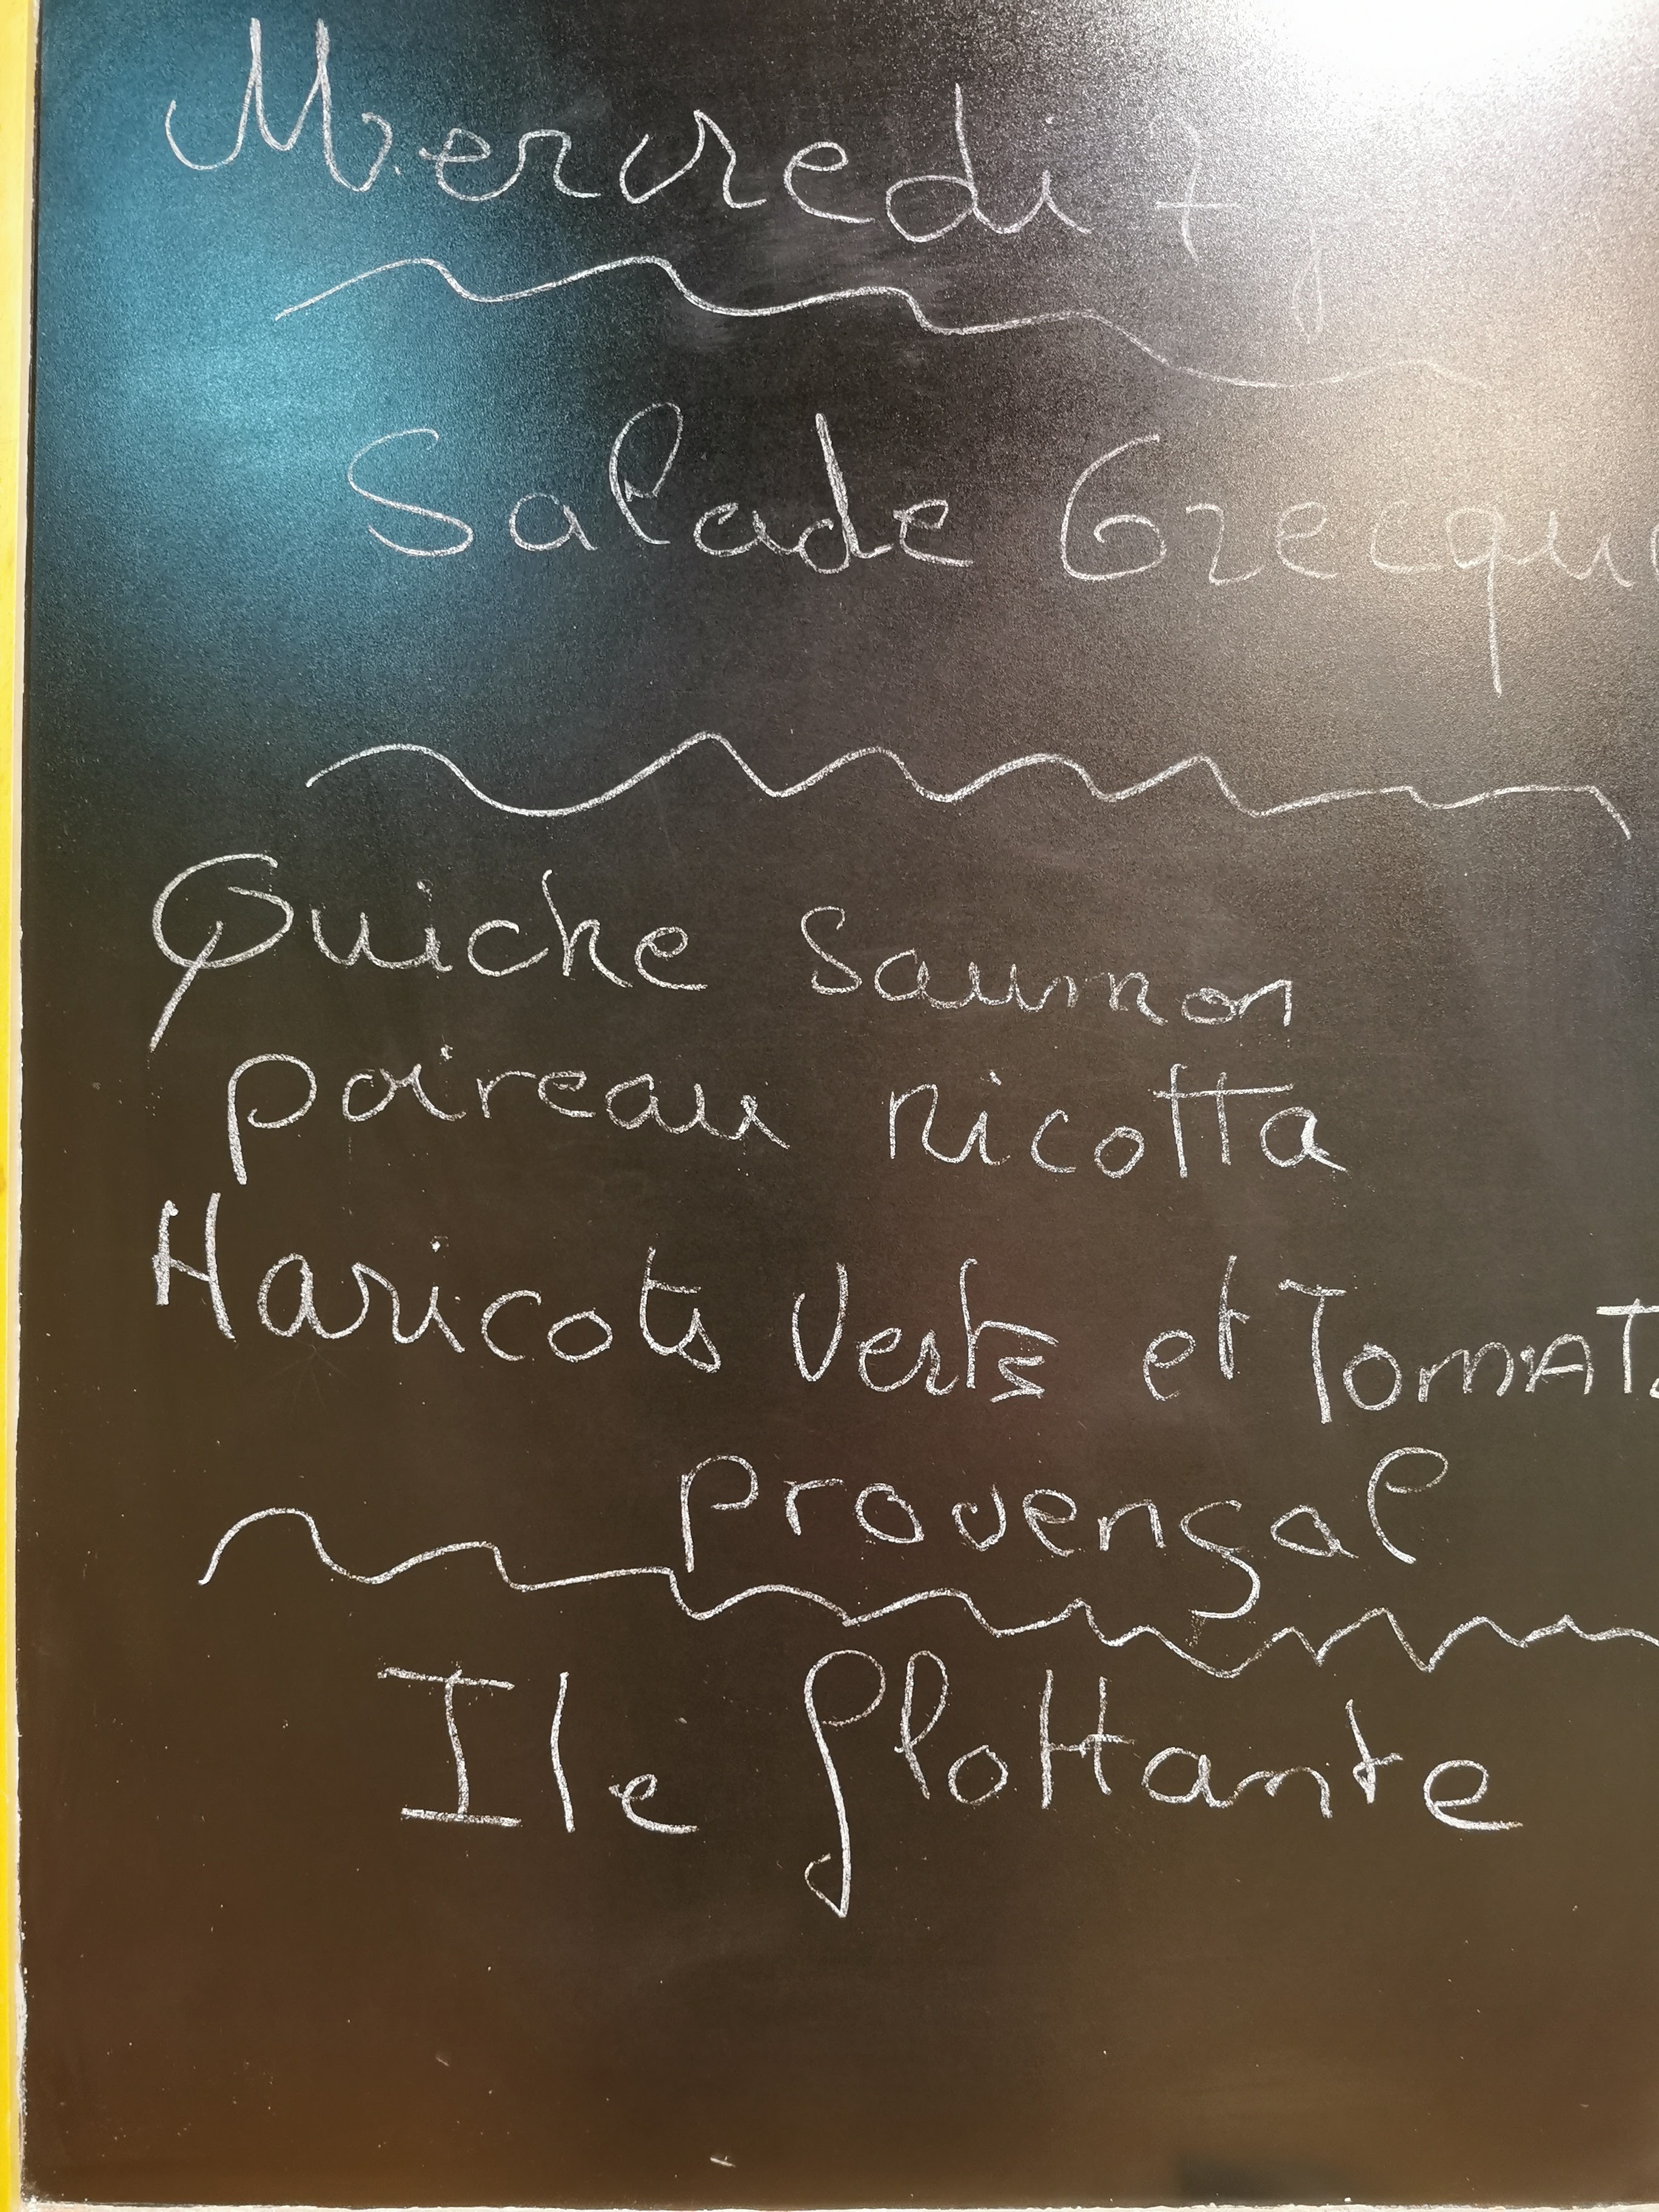 Mercredi 7
Salade Grecque
Quiche Saumon
poireau ricotta
Haricots verts et Tomat
provençal
Ile flottante